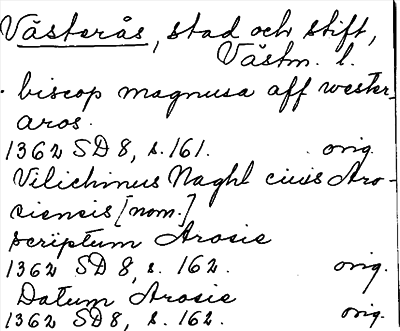 Västerås, stad och stift,
Västm. l.
. biscop magnusa aff wester-
aros.
1362 SD 8, s. 161. orig.
Vilichinus Naghl ciuis Aro-
siensis [nom.]
scriptum Arosie
1362 SD 8, s. 162. orig.
Datum Arosie
1362 SD 8, s. 162. orig.